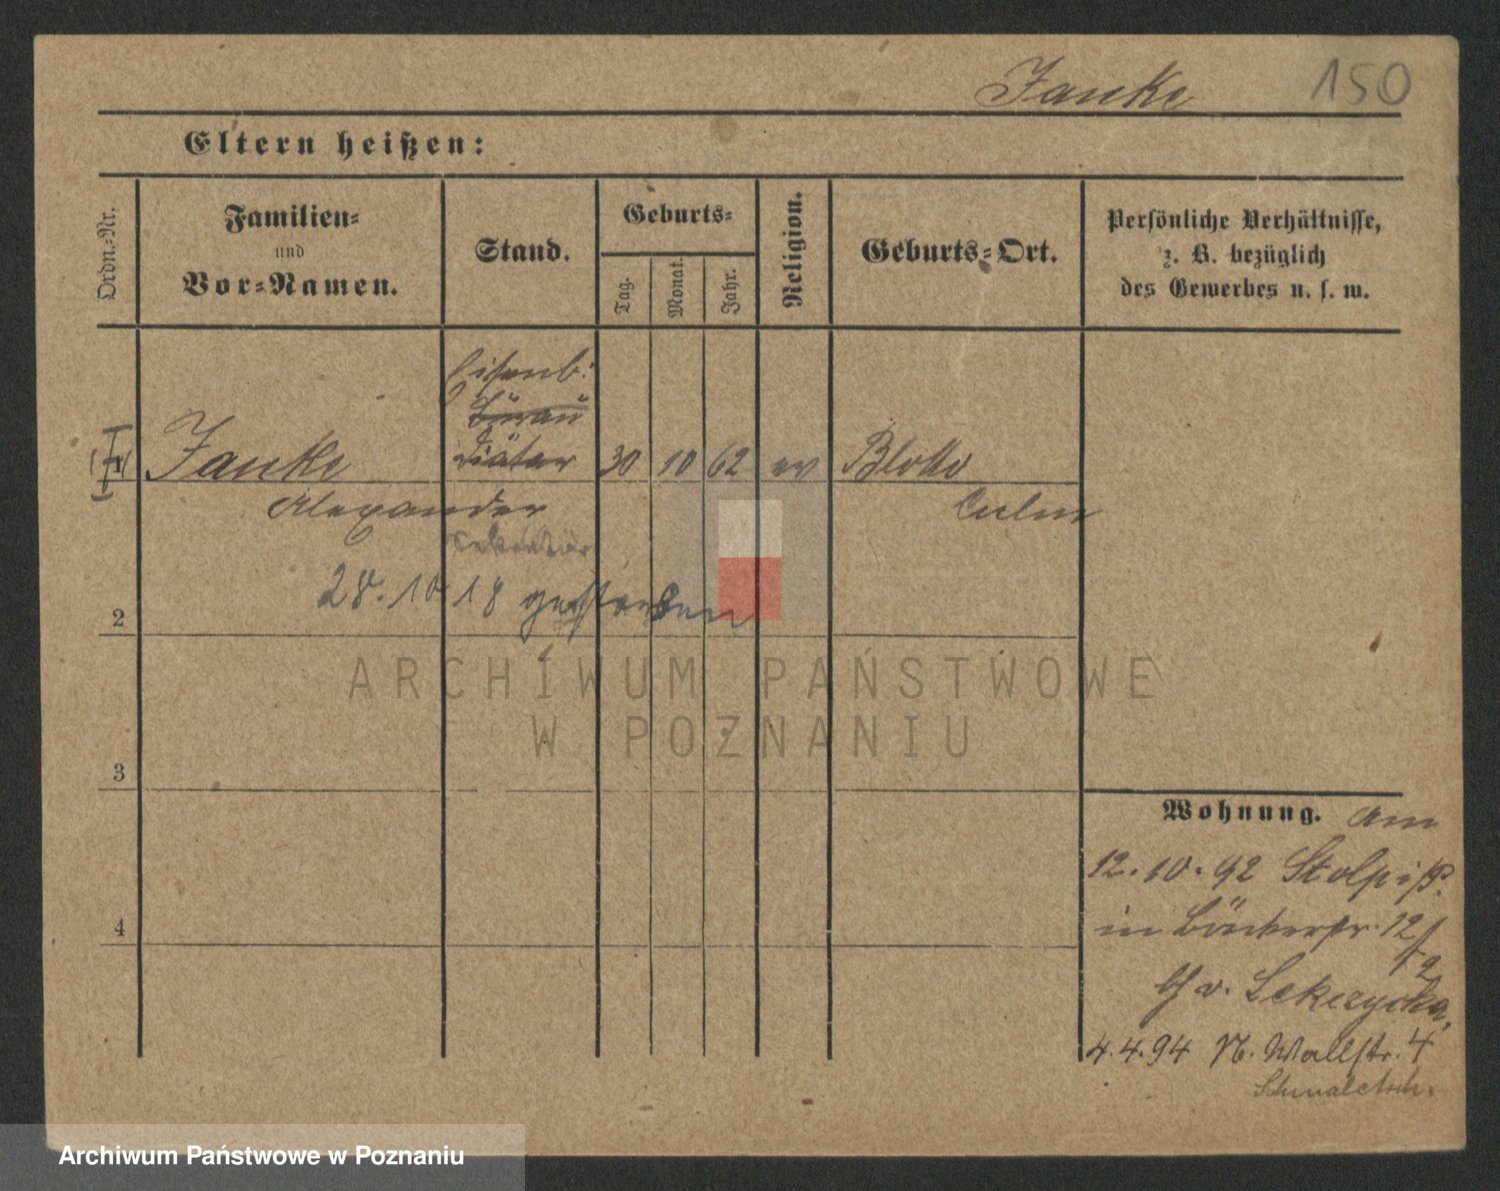 Janke 150
Eltern heißen:
Ordn.=Nr.
Familien=
und
Vor=Namen.
Stand.
Geburts=
Tag.
Monat.
Jahr.
Religion.
Geburts=Ort.
Persönliche Verhältnisse,
z. B. bezüglich
des Gewerbes u. s. w.
Eisenb:
Büreau
Diätar
Janke 30 10 62 ev Blotto
Alexander Culm
Sekretär
28.10.18 gestorben
2
3
4
ARCHIWUM PAŃSTWOWE
W POZNANIU
Wohnung. am
12.10.92 Stolp i/P.
in Bäckerstr. 12/2
b/ v. Lekczycka,
4.4.94 N. Wallstr. 4
Archiwum Państwowe w Poznaniu